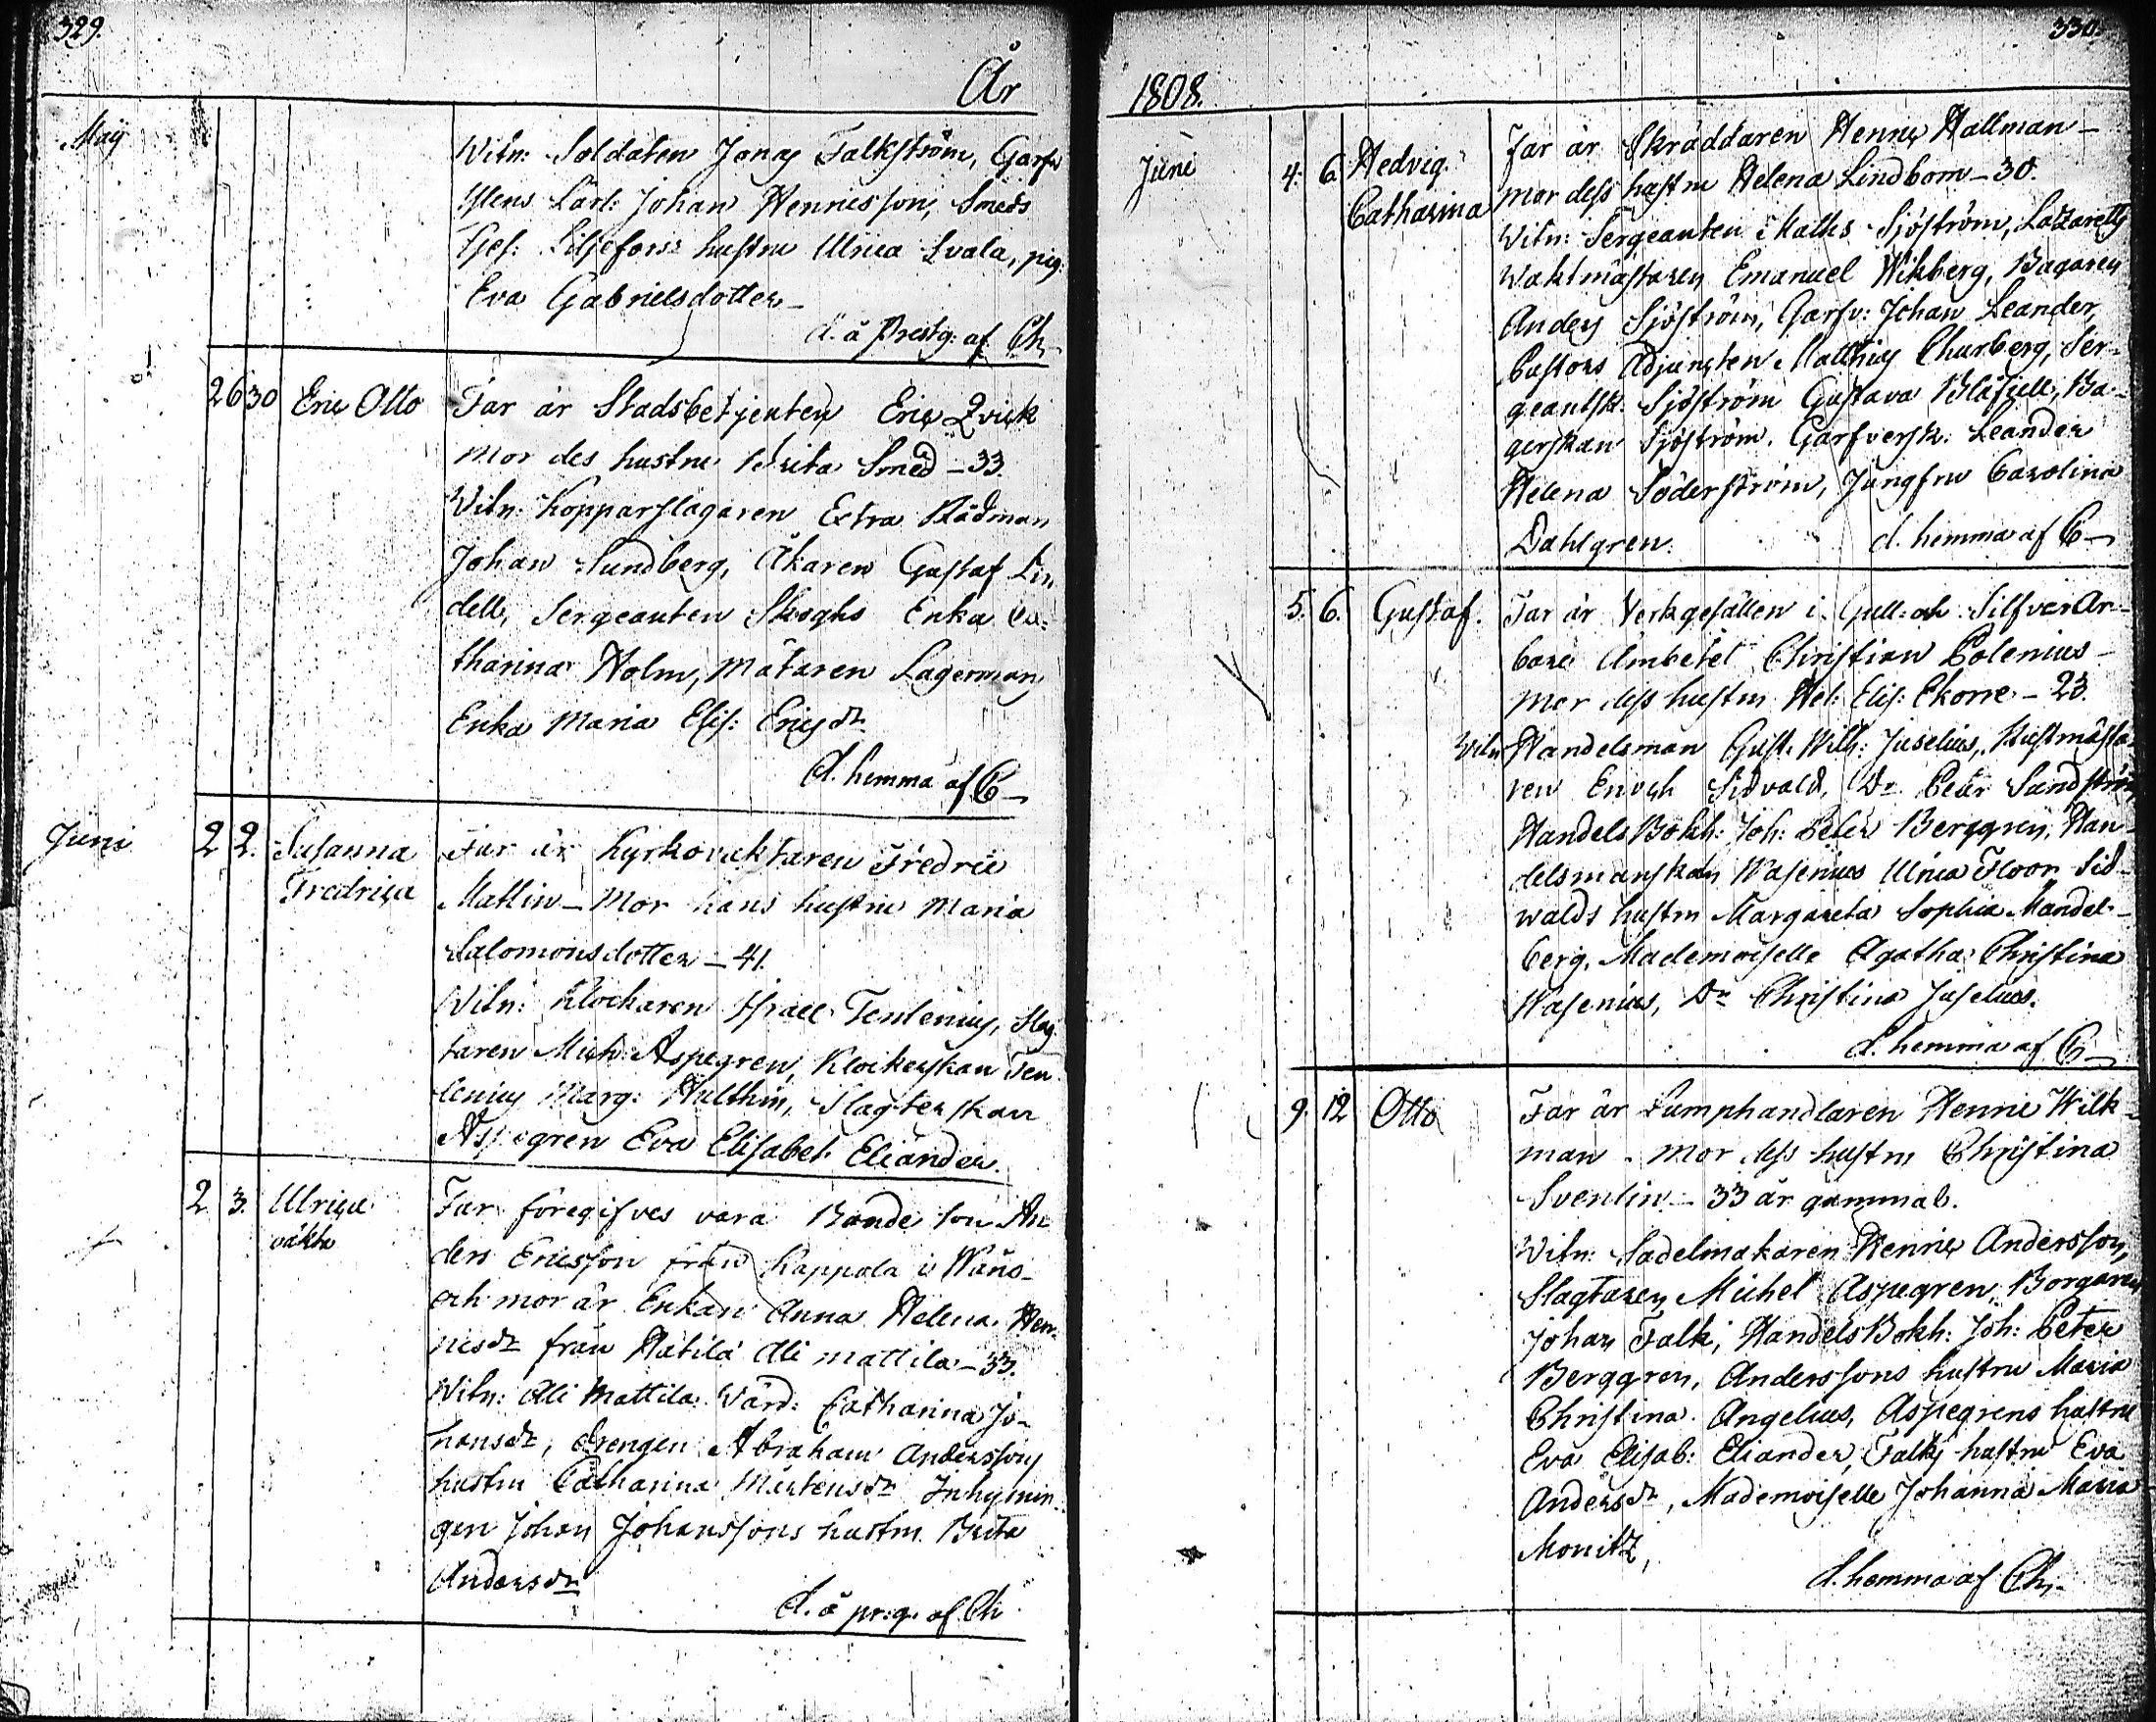 329.
År
Maij
Witn: Soldaten Jonas Falkström, Garfv
Lärl: Johan Hennesson, Smeds
Ges: Liljefors hustru Ulrica Svala, pig:
Eva Gabrielsdotter
d. å Prestg: af Ch
26 30 Eric Otto Far är Stadsbetjenten Eric Qvick
mor des hustru Brita Smed - 33.
Witn: Kopparslagaren Extra Rådman
Johan Sundberg, Åkaren Gustaf Lin
dell, Sergeanten Skoghs Enka Ca=
tharina Holm, Mätaren Lagerman
Enka Maria Elis: Ericsdr
d. hemma af C
Juni 2 2. Susanna Far är Kyrkovaktaren Fredric
Fredrica Matlin - Mor hans hustru Maria
Salomonsdotter - 41.
Witn: Klockaren Israel Tenlenius, Slag
taren Mich: Aspegren, Klockerskan Ten
lenius Marg: Hulthin, Slagterskan
Aspegren Eva Elisabet Eliander.
2. 3. Ulrica Far föregifves vara Bonde son An
oäkta ders Ericsson från Kappola i Wånå
och mor är Enkan Anna Helena Hen
ricsdr från Hätilä Ali mattila - 33.
Witn: Ali Mattila Wärd: Catharina Jo-
hansdr, drengen Abraham Anderssons
hustru Catharina Mårtensdr Inhysin
gen Johan Johanssons hustru Brita
Andersdr
d. å pr:g: af Ch
330.
1808.
Juni 4. 6. Hedvig Far är Skräddaren Henric Hallman -
Catharina mor dess hustru Helena Lindbom - 30.
Witn: Sergeanten Maths Sjöström, Lazaretts
Waktmästaren Emanuel Wikberg, Bagaren
Anders Sjöström, Garfv: Johan Leander,
Pastors Adjuncten Matthias Churberg, Ser-
geantsk: Sjöström Gustava Blåfjell, Ba-
gerskan Sjöström, Garfversk: Leander
Helena Söderström, Jungfru Carolina
Dahlgren. d. hemma af C
5. 6. Gustaf. Far är Verkgesällen i Gull: och Silfver Ar-
bare Ämbetet Christian Polenius -
Mor dess hustru Hel: Elis: Ekorre - 23.
Witn Handelsman Gust. Wilh: Juselius, Rustmästa
ren Enoch Sidvald, Do Petter Sandström
Handels Bokh: Joh: Peter Berggren, Han-
delsmanskan Wasenius Ulrica Floor Sid-
walds hustru Margareta Sophia Mandel-
berg, Mademoiselle Agatha Christina
Wasenius, Do Christina Juselius.
d. hemma af C
9. 12 Otto Far är Lumphandlaren Henric Wilk-
man - mor dess hustru Christina
Svenlin - 33 år gammal.
Witn: Sadelmakaren Henric Andersson,
Slagtaren Michel Aspegren, Borgaren
Johan Falk, Handels Bokh: Joh: Peter
Berggren, Anderssons hustru Maria
Christina Angelius, Aspegrens hustru
Eva Elisab: Eliander, Falks hustru Eva
Andersdr, Mademoiselle Johanna Maria
Monitz,
d. hemma af Ch